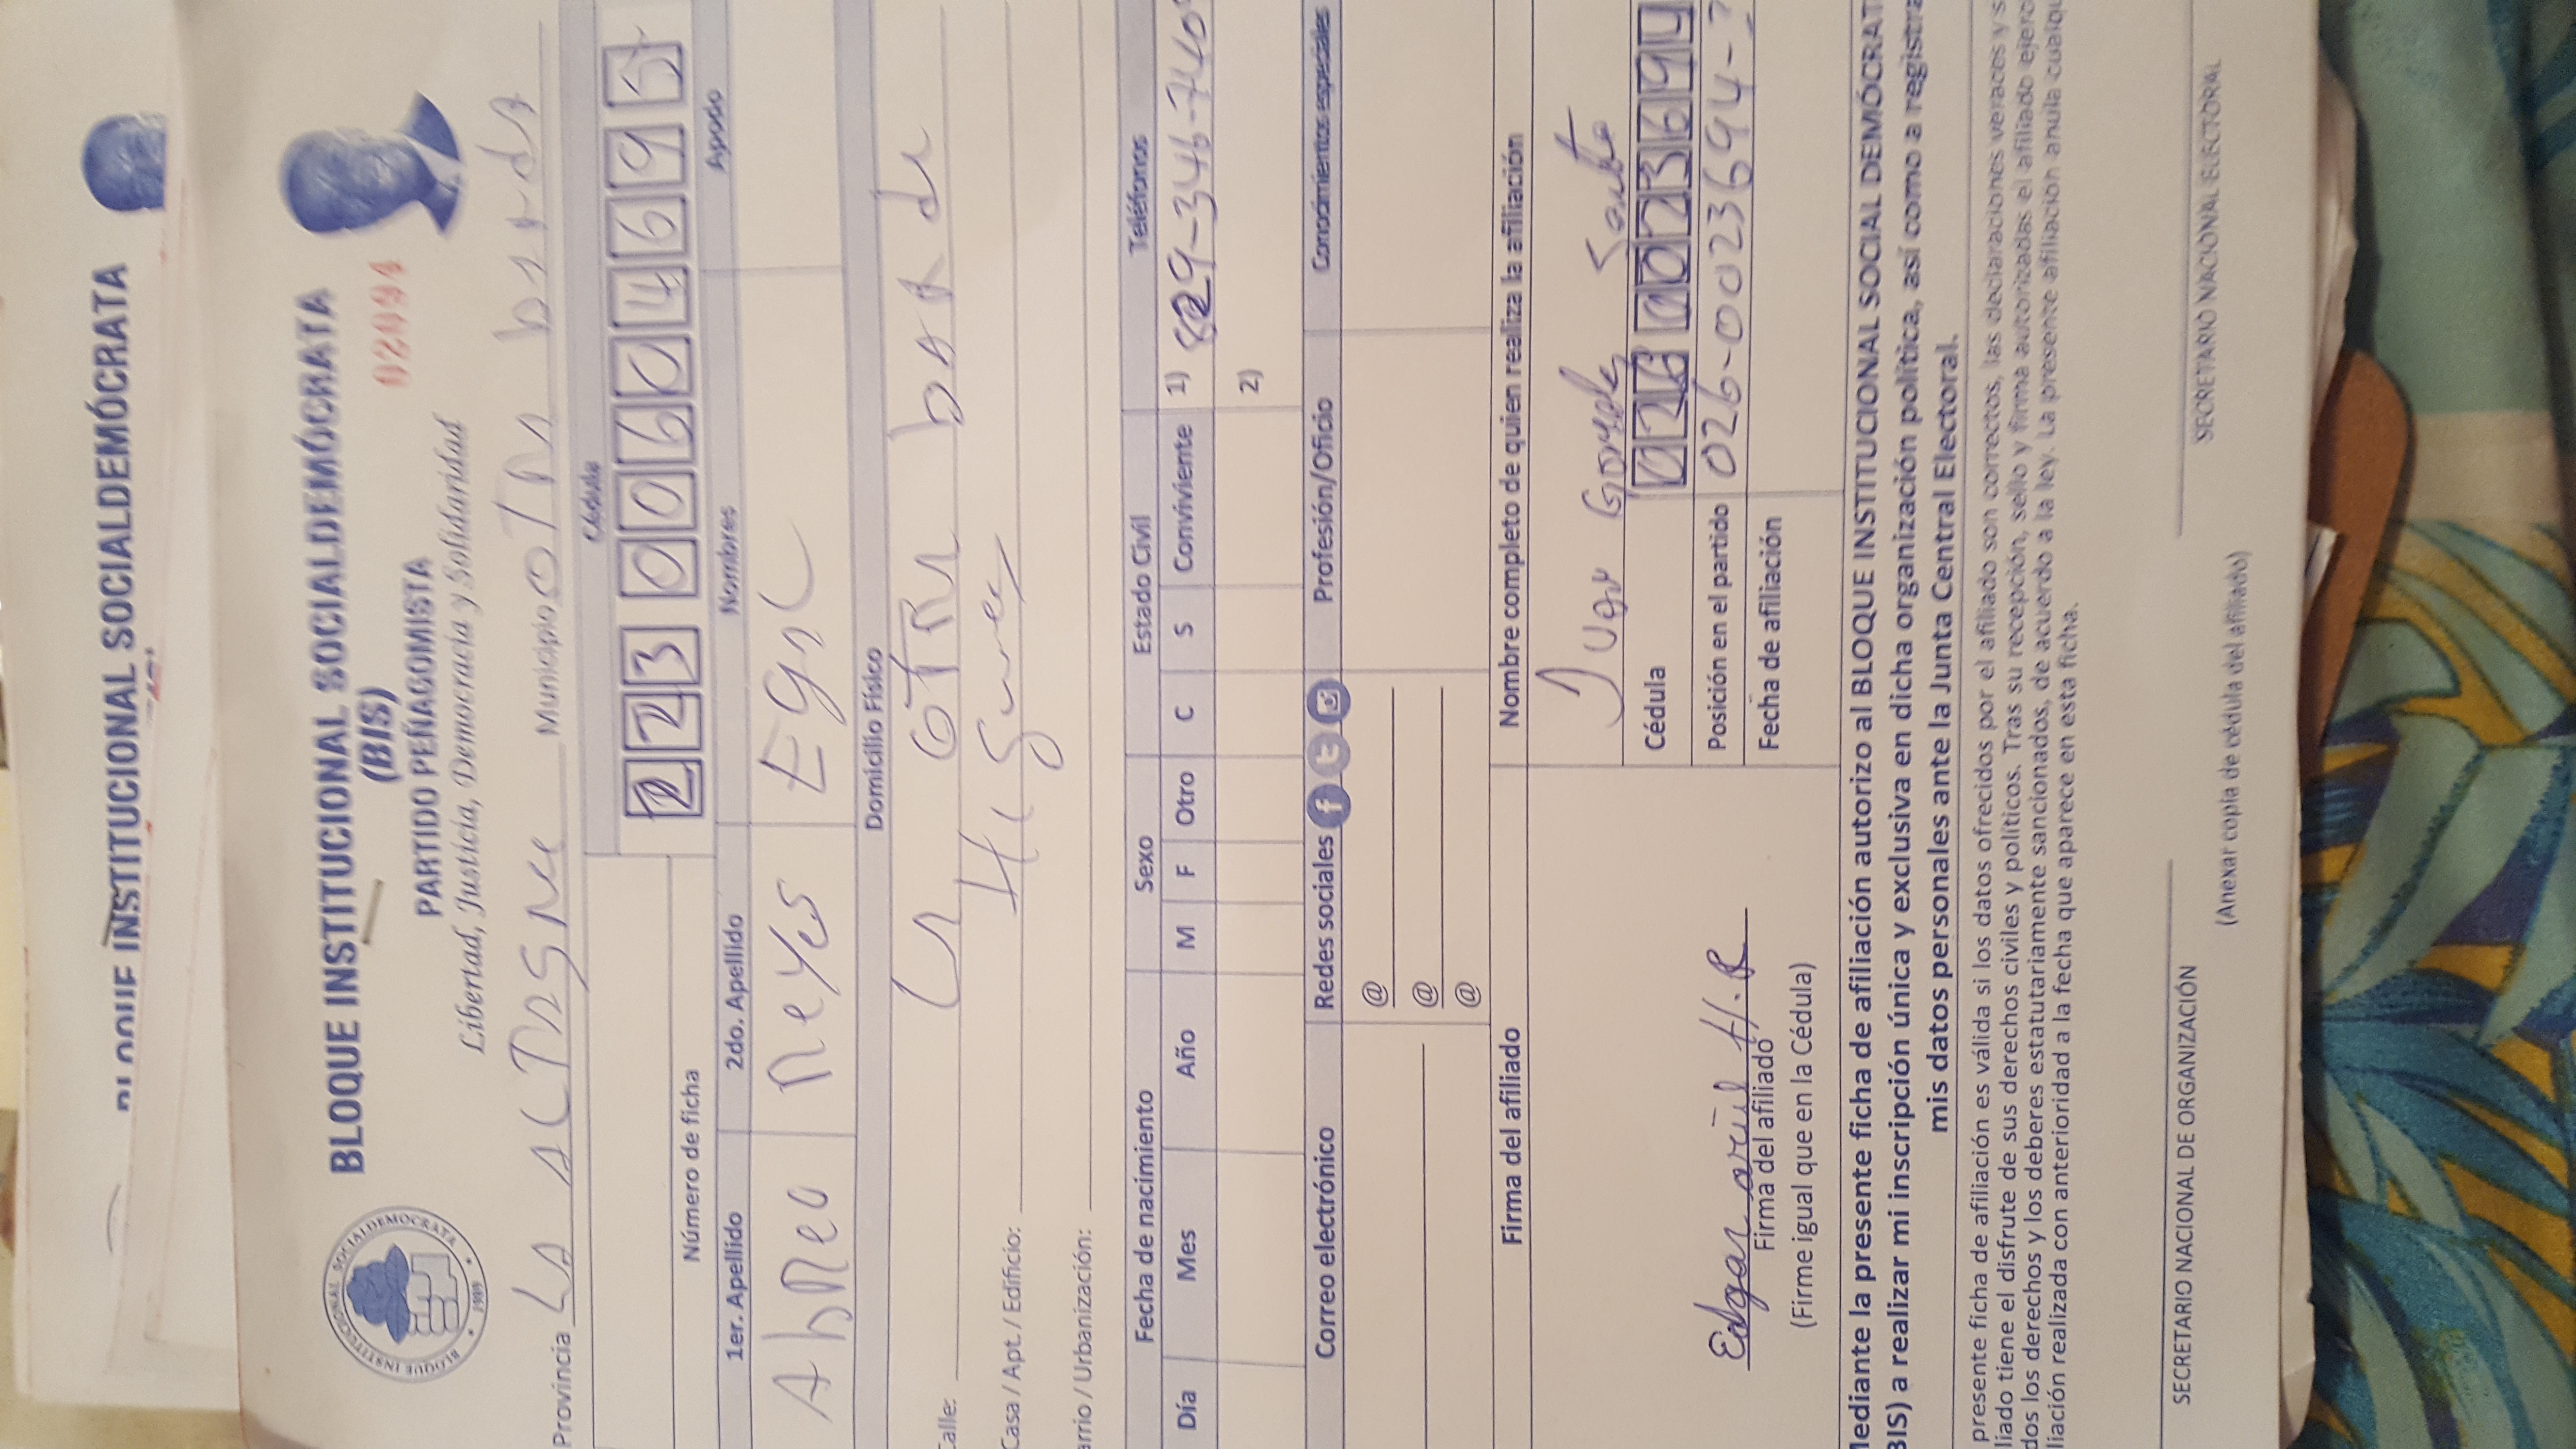 INSTITUCIONAL SOCIALDEMÓCRATA
BLOQUE INSTITUCIONAL SOCIALDEMÓCRATA
(BIS)
02094
PARTIDO PEÑAGOMISTA
Libertad, Justicia, Democracia y Solidaridad
BLOQUE INSTITUCIONAL SOCIALDEMOCRATA
1989
Provincia Municipio
Cédula
223 0060469 5
Número de ficha
1er. Apellido 2do. Apellido Nombres Apodo
Abreo Reyes
Domicilio Físico
Calle:
Casa / Apt. / Edificio:
arrio / Urbanización:
Fecha de nacimiento Sexo Estado Civil Teléfonos
Día Mes Año M F Otro C S Conviviente 1) 829-346-740
2)
Correo electrónico Redes sociales Profesión/Oficio Conocimientos especiales
@
@
@
Firma del afiliado Nombre completo de quien realiza la afiliación
Cédula 026 0023694
Posición en el partido 026-0023694-
Fecha de afiliación
Edgar ariel H.R
Firma del afiliado
(Firme igual que en la Cédula)
Mediante la presente ficha de afiliación autorizo al BLOQUE INSTITUCIONAL SOCIAL DEMÓCRAT
BIS) a realizar mi inscripción única y exclusiva en dicha organización política, así como a registra
mis datos personales ante la Junta Central Electoral.
presente ficha de afiliación es válida si los datos ofrecidos por el afiliado son correctos, las declaraciones veraces y s
liado tiene el disfrute de sus derechos civiles y políticos. Tras su recepción, sello y firma autorizadas el afiliado ejerc
dos los derechos y los deberes estatutariamente sancionados, de acuerdo a la ley. La presente afiliación anula cualqu
liación realizada con anterioridad a la fecha que aparece en esta ficha.
SECRETARIO NACIONAL DE ORGANIZACIÓN SECRETARIO NACIONAL ELECTORAL
(Anexar copia de cédula del afiliado)